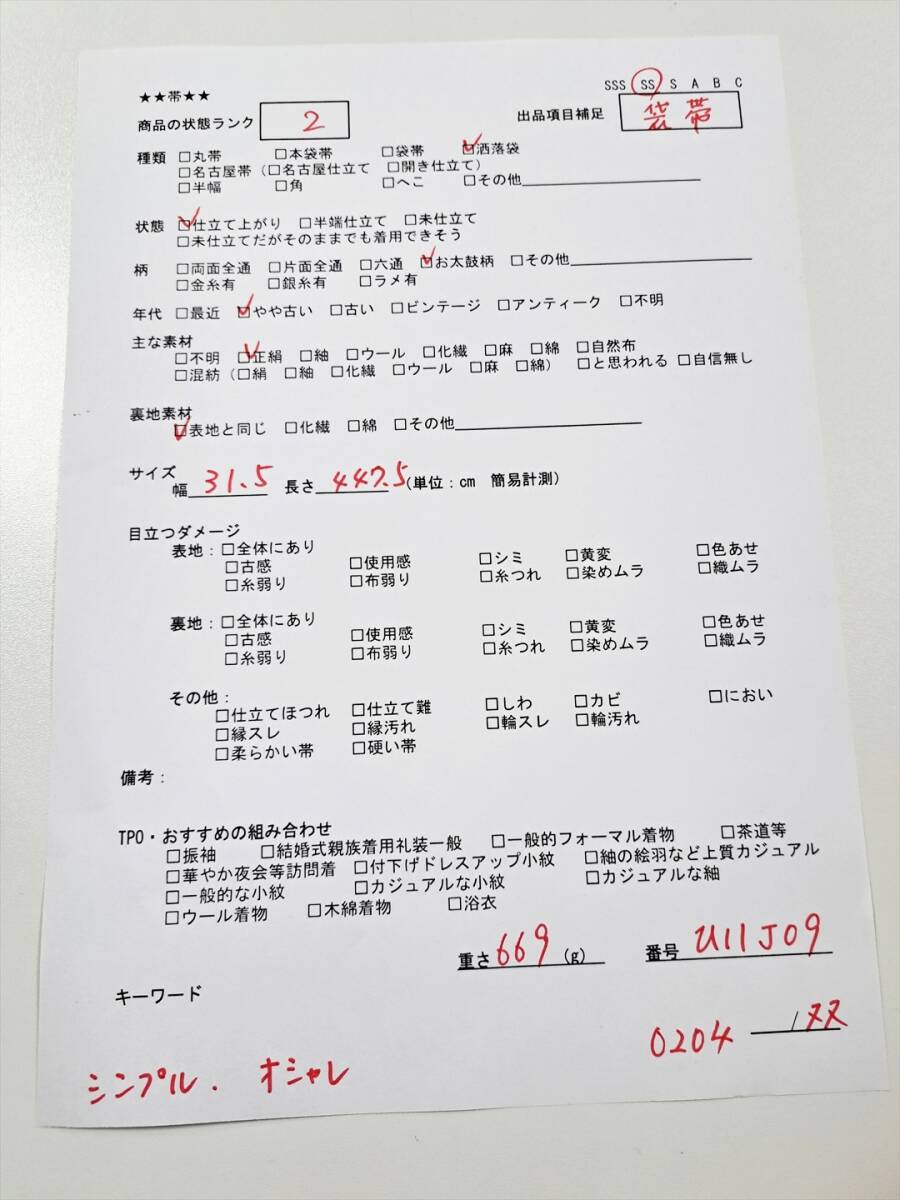 ★★帯★★
SSS SS S A B C
商品の状態ランク 2 出品項目補足 袋帯
種類 □丸帯 □本袋帯 □袋帯 ☑洒落袋
□名古屋帯（□名古屋仕立て □開き仕立て）
□半幅 □角 □へこ □その他
状態 ☑仕立て上がり □半端仕立て □未仕立て
□未仕立てだがそのままでも着用できそう
柄 □両面全通 □片面全通 □六通 ☑お太鼓柄 □その他
□金糸有 □銀糸有 □ラメ有
年代 □最近 ☑やや古い □古い □ビンテージ □アンティーク □不明
主な素材
□不明 ☑正絹 □紬 □ウール □化繊 □麻 □綿 □自然布
□混紡（□絹 □紬 □化繊 □ウール □麻 □綿） □と思われる □自信無し
裏地素材
☑表地と同じ □化繊 □綿 □その他
サイズ
幅 31.5 長さ 447.5 (単位：cm 簡易計測)
目立つダメージ
表地：□全体にあり
□古感 □使用感 □シミ □黄変 □色あせ
□糸弱り □布弱り □糸つれ □染めムラ □織ムラ
裏地：□全体にあり
□古感 □使用感 □シミ □黄変 □色あせ
□糸弱り □布弱り □糸つれ □染めムラ □織ムラ
その他：
□仕立てほつれ □仕立て難 □しわ □カビ □におい
□縁スレ □縁汚れ □輪スレ □輪汚れ
□柔らかい帯 □硬い帯
備考：
TPO・おすすめの組み合わせ
□振袖 □結婚式親族着用礼装一般 □一般的フォーマル着物 □茶道等
□華やか夜会等訪問着 □付下げドレスアップ小紋 □紬の絵羽など上質カジュアル
□一般的な小紋 □カジュアルな小紋 □カジュアルな紬
□ウール着物 □木綿着物 □浴衣
重さ 669 (g) 番号 U11J09
キーワード
0204
シンプル. オシャレ